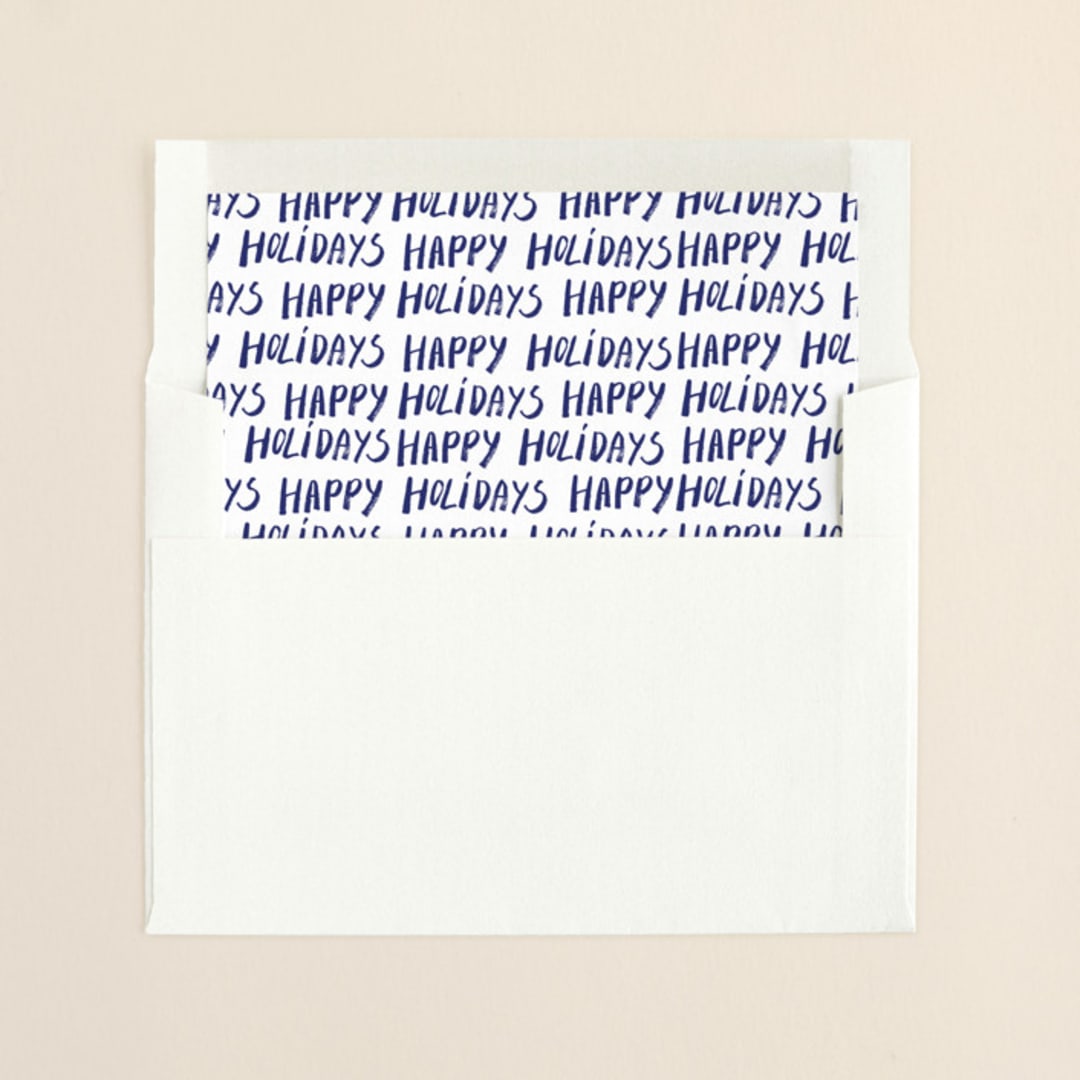 AYS HAPPY HOLIDAYS HAPPY HOLIDAYS H
Y HOLÍDAYS HAPPY HOLÍDAYS HAPPY HOL
AYS HAPPY HOLÍDAYS HAPPY HOLÍDAYS H
Y HOLÍDAYS HAPPY HOLÍDAYS HAPPY HOL
AYS HAPPY HOLÍDAYS HAPPY HOLÍDAYS
HOLÍDAYS HAPPY HOLÍDAYS HAPPY HO
YS HAPPY HOLÍDAYS HAPPY HOLÍDAYS
HOLÍDAYS HAPPY HOLÍDAYS HAPPY HO